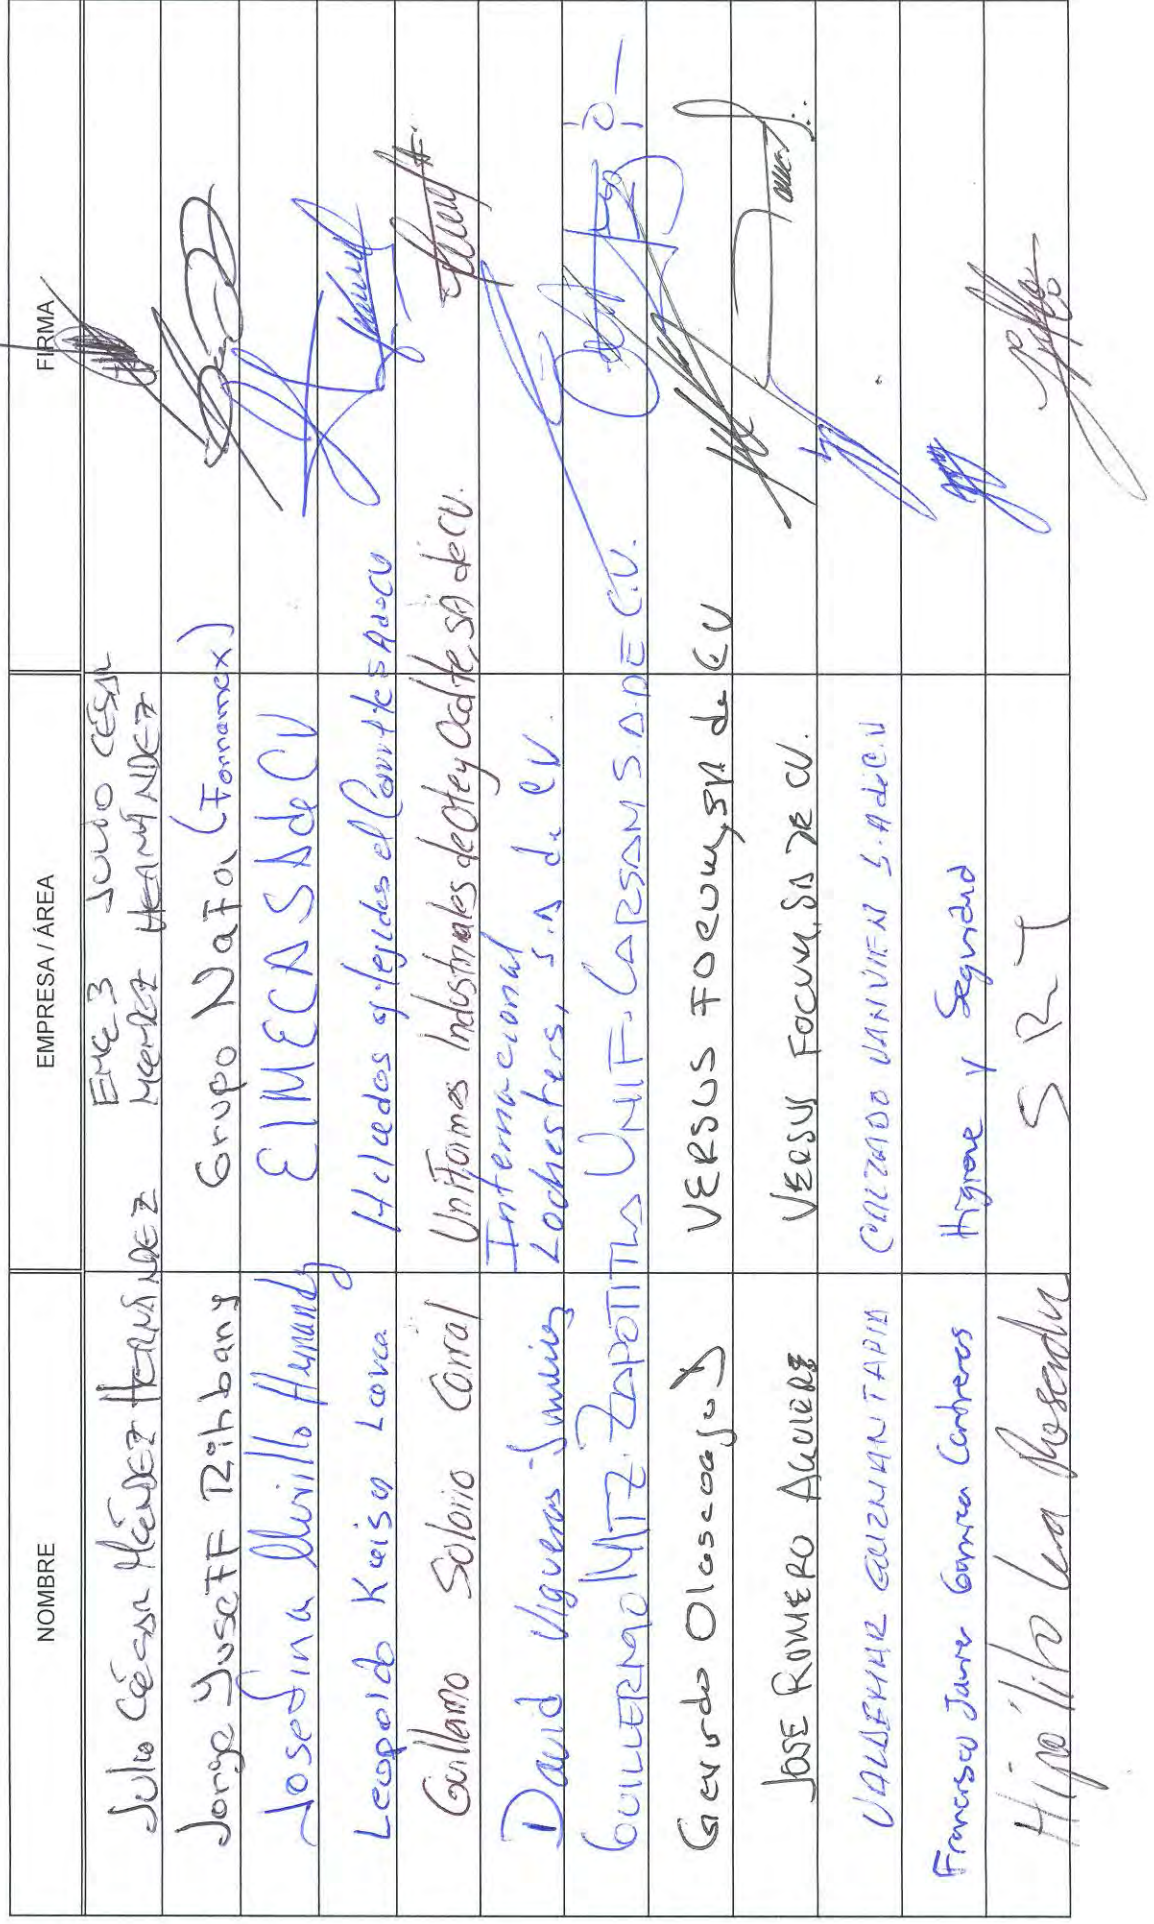 NOMBRE EMPRESA / ÁREA FIRMA
JULIO CÉSAR MÉNDEZ HERNÁNDEZ EME 3 JULIO CÉSAR
MENDEZ HERNÁNDEZ
Jorge Yuseff Rihbany Grupo Nafa (Fornamex)
Josefina Murillo Hernandz EIMECA SA de CV
Leopoldo Kaiso Helados y tejidos el SA de CV
Guillamo Solorio Corral Uniformes Industriales de SA de CV.
David Vigueras Internacional
Lochesters, S.A de CV.
GUILLERMO MTZ. ZAPOTITLA UNIF. CARSAM S.A. DE C.V.
Gerardo Olascoaga VERSUS FOCUUM, SA de CV
JOSE ROMERO AGUILERA VERSUS FOCUUM, SA DE CV.
VALDEMAR GUZMAN TAPIA CALZADO VANVIEN S.A de C.V
Francisco Javier Garnica Contreras Higiene y Seguridad
Hipólito Lea Rosendu S R T